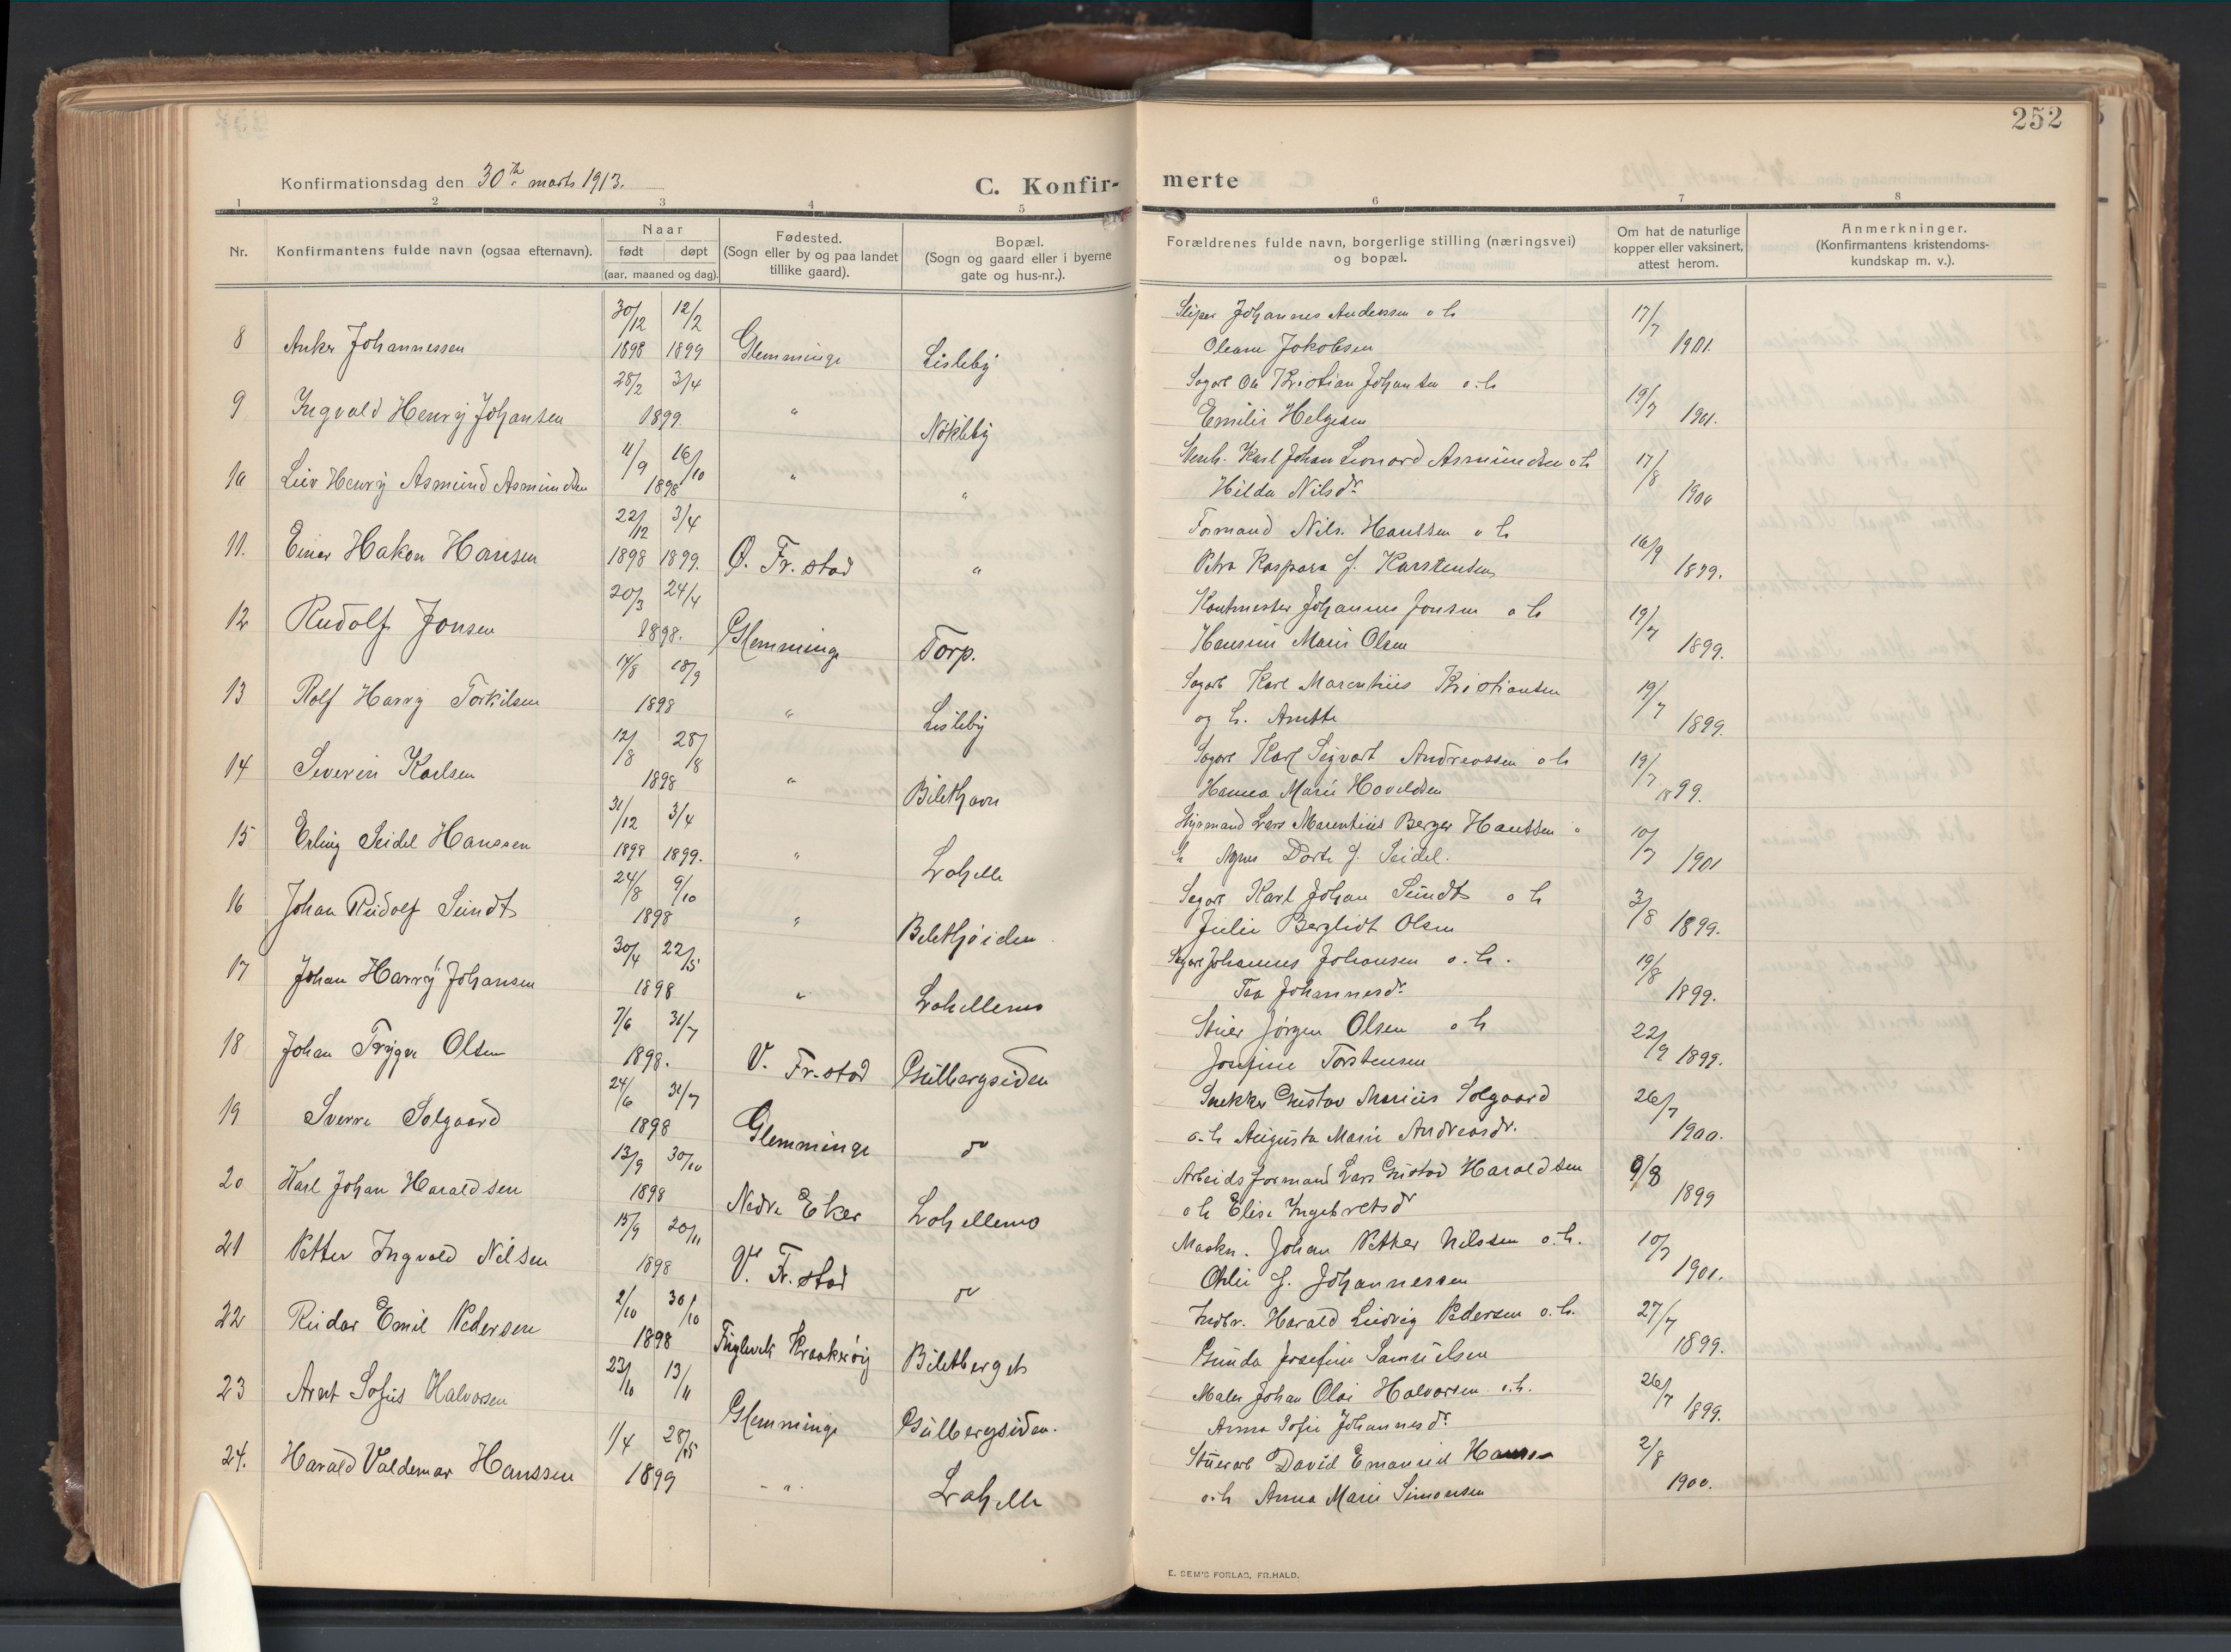 252
Konfirmationsdag den 30te marts 1913.
C. Konfir-
merte
1 2 3 4 5 6 7 8
Nr.
Konfirmantens fulde navn (ogsaa efternavn).
Naar
født døpt
(aar, maaned og dag).
Fødested.
(Sogn eller by og paa landet
tillike gaard).
Bopæl.
(Sogn og gaard eller i byerne
gate og hus-nr.).
Forældrenes fulde navn, borgerlige stilling (næringsvei)
og bopæl.
Om hat de naturlige
kopper eller vaksinert,
attest herom.
Anmerkninger.
(Konfirmantens kristendoms-
kundskap m. v.).
30/12 12/2 Sliper Johannes Andersen o h 17/7
8 Anker Johannessen 1898 1899 Glemminge Lisleby Oleane Jakobsen 1901.
28/2 3/4 Sagarb Ole Kristian Johansen o. h 19/7
9 Ingvald Henry Johansen 1899 " Nökleby Emilie Helgesen 1901.
11/9 16/10 Karl Johan Leonard Asmundsen o h 17/8
10 Leiv Henry Asmund Asmundsen 1898 " " Hilda Nilsdr 1900
22/12 3/4 Formand Nils Hanssen o h 16/9
11. Einar Hakon Hansen 1898 1899. Ø. Fr. stad " Petra Kaspara f. Karstensen 1899.
20/3 24/4 Johannes Jonsen o h 19/7
12 Rudolf Jonsen 1898. Glemminge Torp. Hansine Marie Olsen 1899.
14/8 18/9 Sagarb Karl Marentius Kristiansen 19/7
13 Rolf Harry Torkilsen 1898 " Lisleby og h. Anette 1899.
12/8 28/8 Sagarb Karl Sigvart Andreassen o h 19/7
14 Severin Karlsen 1898 " Bilethavn Hanna Marie Havoldsen 1899.
31/12 3/4 Styrmand Lars Marentius Berger Hanssen o 10/7
15 Erling Seidel Hanssen 1898 1899. " Lahelle h Agnes Dorte f. Seidel. 1901
24/8 9/10 Sagarb Karl Johan Sundt o h 3/8
16 Johan Rudolf Sundt 1898 " Bilethöiden Julie Berglidt Olsen 1899.
30/4 22/5 Sagarb Johannes Johansen o. h. 19/8
17 Johan Harry Johansen 1898 " Lahellemo Tea Johannesdr 1899.
7/6 31/7 Stuer Jörgen Olsen o h 22/9
18 Johan Trygve Olsen 1898. V. Fr. stad Gulbergsiden Josefine Torstensen 1899.
24/6 31/7 Snekker Gustav Marius Solgaard 26/7
19 Sverre Solgaard 1898 Glemminge do o. h Augusta Marie Andreasdr. 1900.
13/9 30/10 Arbeidsformand Lars Gustav Haraldsen 9/8
20 Karl Johan Haraldsen 1898 Nedre Eker Lahellemo o h Elise Ingebretsdr 1899
15/9 20/11 Maskn. Johan Petter Nilssen o. h. 10/7
21 Petter Ingvald Nilsen 1898 V. Fr. stad do Otilie f. Johannessen 1901.
2/10 30/10 Indbr. Harald Ludvig Pedersen o. h. 27/7
22 Reidar Emil Pedersen 1898 Fuglevik Kraakeröy Biletberget Gunda Josefine Samuelsen 1899.
23/10 13/11 Maler Johan Olai Halvorsen o. h. 26/7
23 Arnt Sofus Halvorsen Glemminge Gulbergsiden. Anna Sofie Johannesdr 1899.
1/4 28/5 Stuerarb David Emanuel Hansen 2/8
24. Harald Valdemar Hanssen 1899 " Lahelle o. h Anna Marie Simonsen 1900.
E. SEM'S FORLAG, FR.HALD.